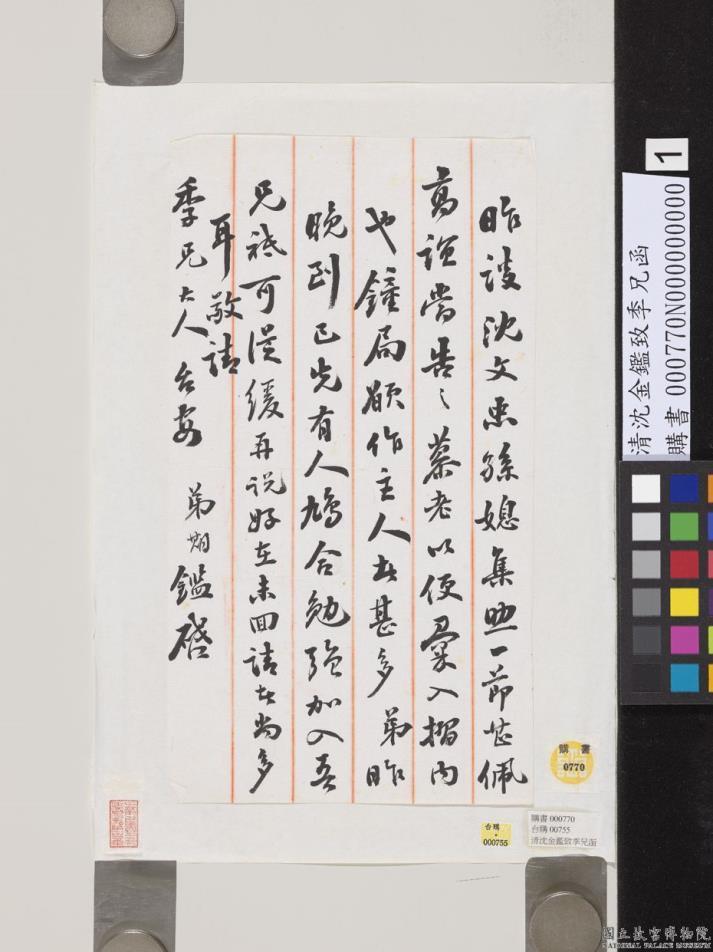 昨談沈文忠孫媳集照一節甚佩
高誼當告〻慕老以便彙入摺內
也鐘局願作主人者甚多弟昨
晚到已先有人鳩合勉強加入吾
兄祗可從緩再說好在未回請者尚多
耳敬請
季兄大人台安
弟期鑑啓
清沈金鑑致季兄函
購書 000770N000000000
1
購書
0770
台購
000755
購書 000770
台購 00755
清沈金鑑致季兄函
國立故宮博物院
NATIONAL PALACE MUSEUM